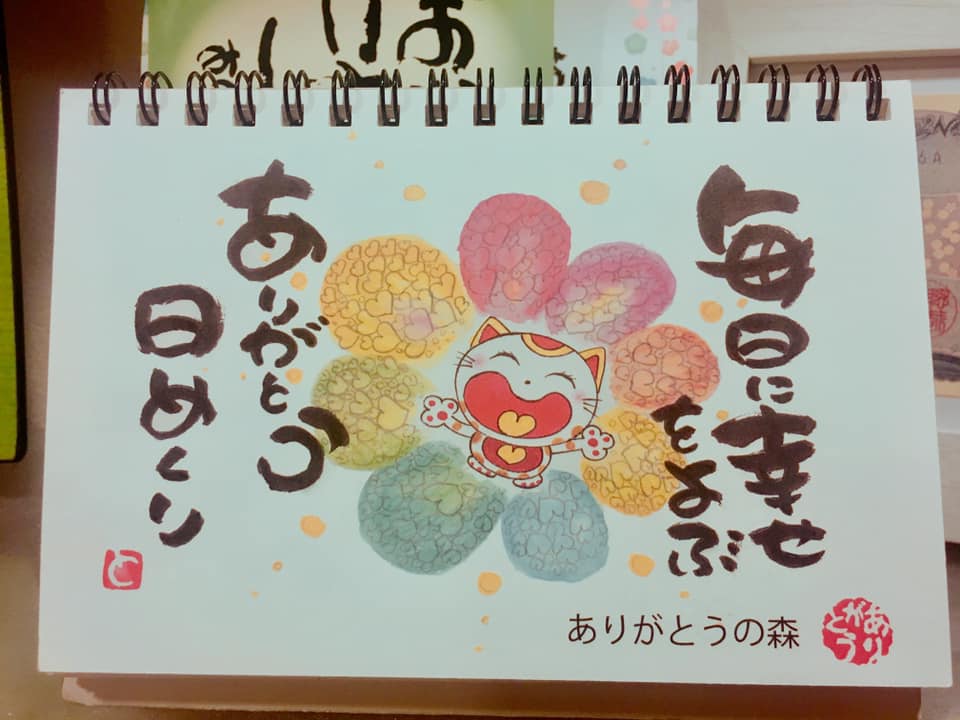 毎日に幸せ
をよぶ
ありがとう
日めくり
と
ありがとうの森
ありがとう